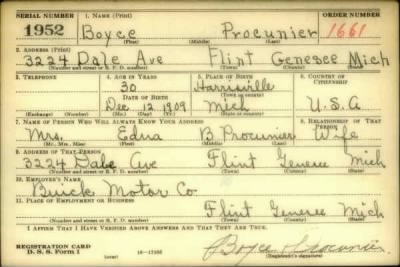 SERIAL NUMBER 1. NAME (Print) ORDER NUMBER
1952 Boyce Procunier 1661
(First) (Middle) (Last)
2. ADDRESS (Print)
3224 Dale Ave Flint Genesee Mich
(Number and street or R. F. D. number) (Town) (County) (State)
3. TELEPHONE 4. AGE IN YEARS 5. PLACE OF BIRTH 6. COUNTRY OF CITIZENSHIP
30 Harrisville
DATE OF BIRTH (Town or county)
Dec 12 1909 Mich U.S.A
(Exchange) (Number) (Mo.) (Day) (Yr.) (State or country)
7. NAME OF PERSON WHO WILL ALWAYS KNOW YOUR ADDRESS 8. RELATIONSHIP OF THAT PERSON
Mrs. Edna B Procunier Wife
(Mr., Mrs., Miss) (First) (Middle) (Last)
9. ADDRESS OF THAT PERSON
3224 Dale Ave Flint Genesee Mich
(Number and street or R. F. D. number) (Town) (County) (State)
10. EMPLOYER'S NAME
Buick Motor Co
11. PLACE OF EMPLOYMENT OR BUSINESS
Flint Genesee Mich
(Number and street or R. F. D. number) (Town) (County) (State)
I AFFIRM THAT I HAVE VERIFIED ABOVE ANSWERS AND THAT THEY ARE TRUE.
REGISTRATION CARD
D. S. S. Form 1 Boyce Procunier
(over) (Registrant's signature)